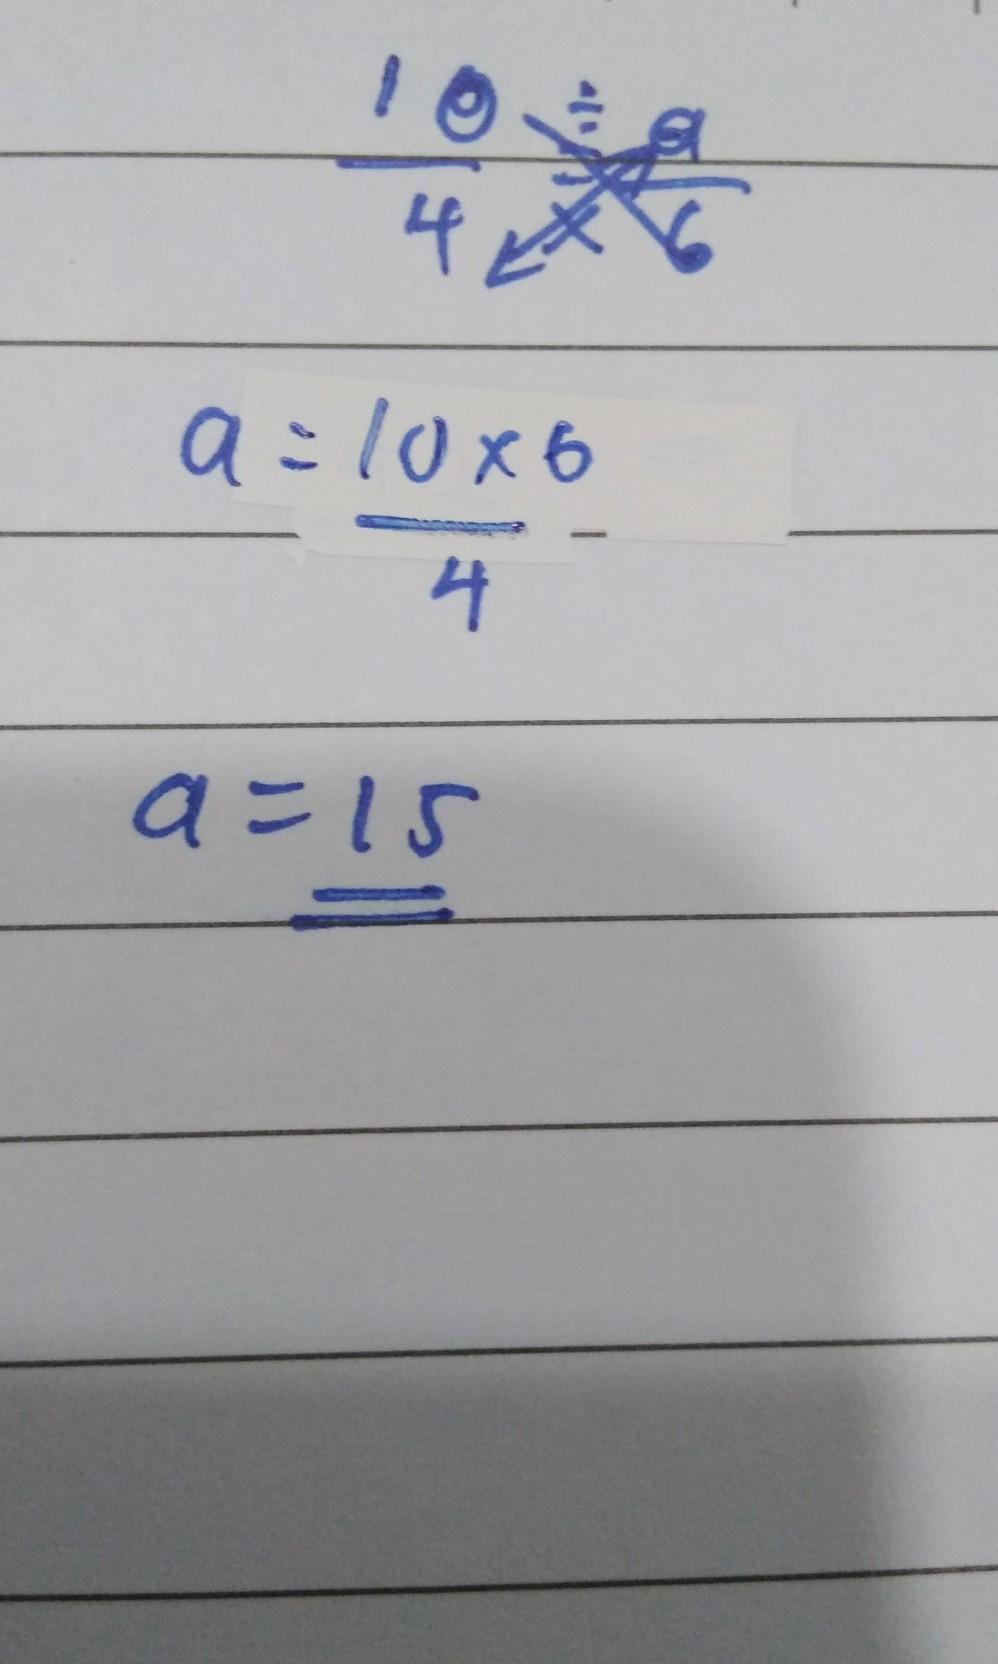 10 ÷ a
4 = × 6
a = 10 × 6
4
a = 15